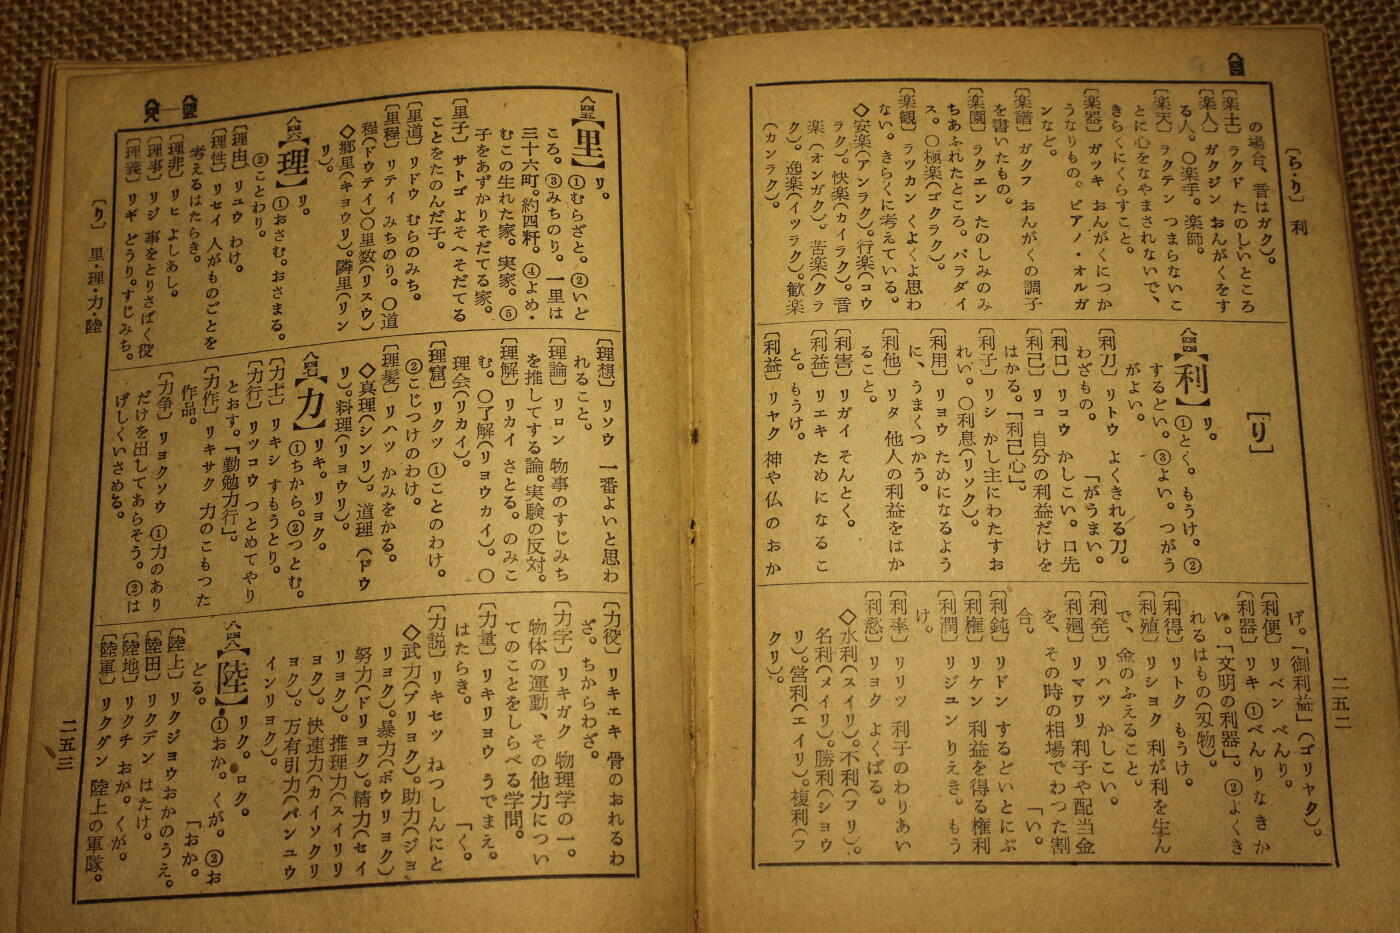 八四四
〔ら・り〕 利
二五二
の場合、昔はガク)。
〔楽土〕 ラクド たのしいところ
〔楽人〕 ガクジン おんがくをす
る人。〇楽手。楽師。
〔楽天〕 ラクテン つまらないこ
とに心をなやまされないで、
きらくにくらすこと。
〔楽器〕 ガッキ おんがくにつか
うなりもの。ピアノ・オルガ
ンなど。
〔楽譜〕 ガクフ おんがくの調子
を書いたもの。
〔楽園〕 ラクエン たのしみのみ
ちあふれたところ。パラダイ
ス。〇極楽(ゴクラク)。
〔楽観〕 ラッカン くよくよ思わ
ない。きらくに考えている。
◇安楽(アンラク)。行楽(コウ
ラク)。快楽(カイラク)。音
楽(オンガク)。苦楽(クラ
ク)。逸楽(イツラク)。歓楽
(カンラク)。
〔り〕
八四四【利】 リ。
①とく。もうけ。②
するどい。③よい。つがう
がよい。
〔利刀〕 リトウ よくきれる刀。
わざもの。 「がうまい。
〔利口〕 リコウ かしこい。口先
〔利己〕 リコ 自分の利益だけを
はかる。「利己心」。
〔利子〕 リシ かし主にわたすお
れい。〇利息(リソク)。
〔利用〕 リヨウ ためになるよう
に、うまくつかう。
〔利他〕 リタ 他人の利益をはか
ること。
〔利害〕 リガイ そんとく。
〔利益〕 リエキ ためになるこ
と。もうけ。
〔利益〕 リヤク 神や仏のおか
げ。「御利益」(ゴリヤク)。
〔利便〕 リベン べんり。
〔利器〕 リキ ①べんりなきか
い。「文明の利器」。②よくき
れるはもの(刄物)。
〔利得〕 リトク もうけ。
〔利殖〕 リショク 利が利を生ん
で、金のふえること。
〔利発〕 リハツ かしこい。
〔利廻〕 リマワリ 利子や配当金
を、その時の相場でわつた割
合。 「い。
〔利鈍〕 リドン するどいとにぶ
〔利権〕 リケン 利益を得る権利
〔利潤〕 リジユン りえき。もう
け。
〔利率〕 リリツ 利子のわりあい
〔利慾〕 リヨク よくばる。
◇水利(スイリ)。不利(フリ)。
名利(メイリ)。勝利(ショウ
リ)。営利(エイリ)。複利(フ
クリ)。
八四五—八四八
〔り〕 里・理・力・陸
二五三
八四五【里】 リ。
①むらざと。②いど
ころ。③みちのり。一里は
三十六町。約四粁。④よめ・
むこの生れた家。実家。⑤
子をあずかりそだてる家。
〔里子〕 サトゴ よそへそだてる
ことをたのんだ子。
〔里道〕 リドウ むらのみち。
〔里程〕 リテイ みちのり。〇道
程(ドウテイ)〇里数(リスウ)
◇郷里(キョウリ)。隣里(リン
リ)。
八四六【理】 リ。
①おさむ。おさまる。
②ことわり。
〔理由〕 リユウ わけ。
〔理性〕 リセイ 人がものごとを
考えるはたらき。
〔理非〕 リヒ よしあし。
〔理事〕 リジ 事をとりさばく役
〔理義〕 リギ どうり。すじみち。
〔理想〕 リソウ 一番よいと思わ
れること。
〔理論〕 リロン 物事のすじみち
を推してする論。実験の反対。
〔理解〕 リカイ さとる。のみこ
む。〇了解(リョウカイ)。〇
理会(リカイ)。
〔理窟〕 リクツ ①ことのわけ。
②こじつけのわけ。
〔理髪〕 リハツ かみをかる。
◇真理(シンリ)。道理(ドウ
リ)。料理(リョウリ)。
八四七【力】 リキ。リヨク。
①ちから。②つとむ。
〔力士〕 リキシ すもうとり。
〔力行〕 リッコウ つとめてやり
とおす。「勤勉力行」。
〔力作〕 リキサク 力のこもつた
作品。
〔力争〕 リヨクソウ ①力のあり
だけを出してあらそう。②は
げしくいさめる。
〔力役〕 リキエキ 骨のおれるわ
ざ。ちからわざ。
〔力学〕 リキガク 物理学の一。
物体の運動、その他力につい
てのことをしらべる学問。
〔力量〕 リキリョウ うでまえ。
はたらき。 「く。
〔力説〕 リキセツ ねつしんにと
◇武力(ブリョク)。助力(ジョ
リョク)。暴力(ボウリョク)
努力(ドリョク)。精力(セイ
リョク)。推理力(スイリリ
ョク)。快速力(カイソクリ
ョク)。万有引力(バンユウ
インリョク)。
八四八【陸】 リク。ロク。
①おか。くが。②お
どる。 「おか。
〔陸上〕 リクジョウ おかのうえ。
〔陸田〕 リクデン はたけ。
〔陸地〕 リクチ おか。くが。
〔陸軍〕 リクグン 陸上の軍隊。